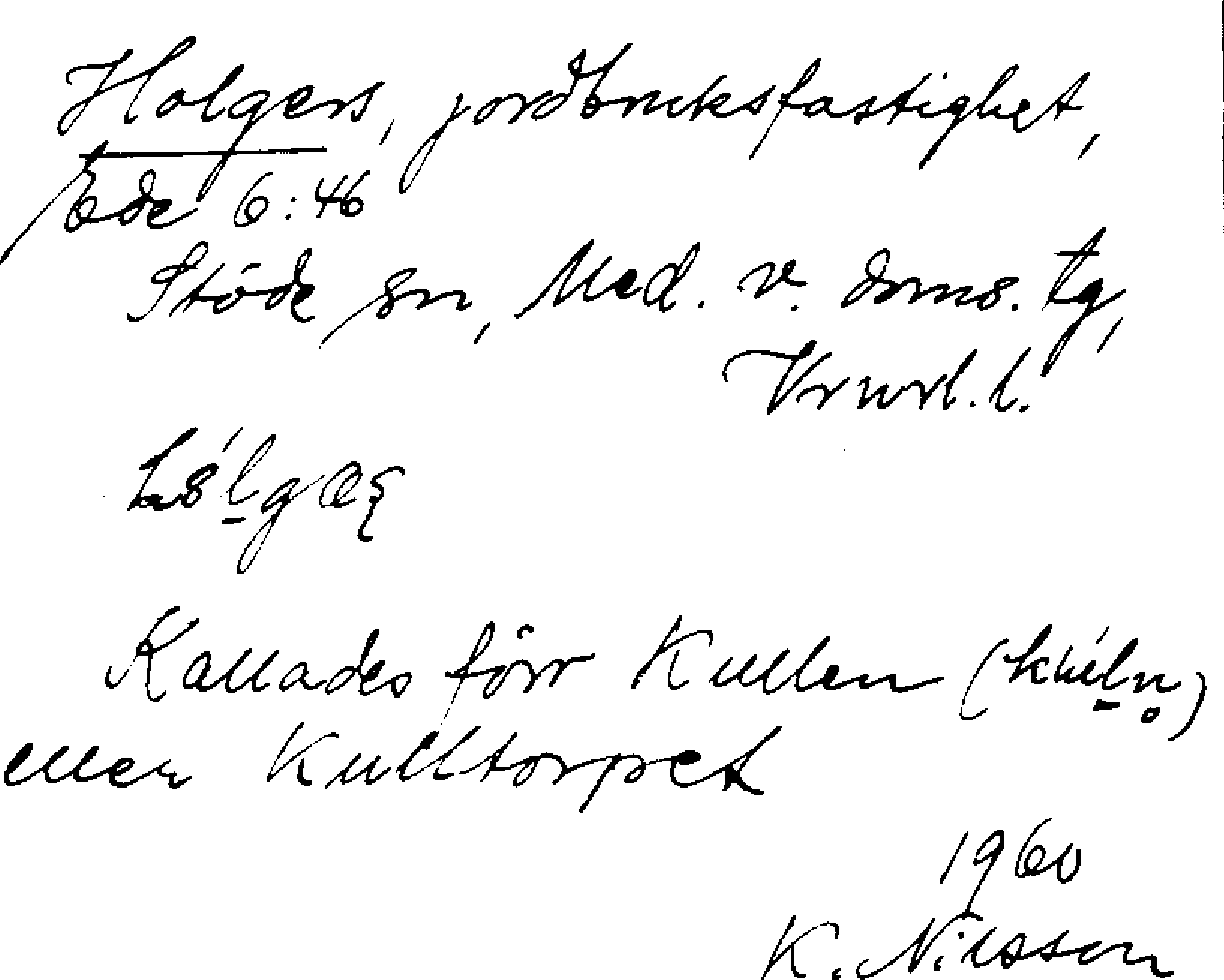 Holgers, jordbruksfastighet,
Ede 6:46
Stöde sn, Med. v. doms. tg,
Vrnrl. l.
Kallades förr Kullen (kúl̠n̥)
eller Kulltorpet
1960
K. Nilsson